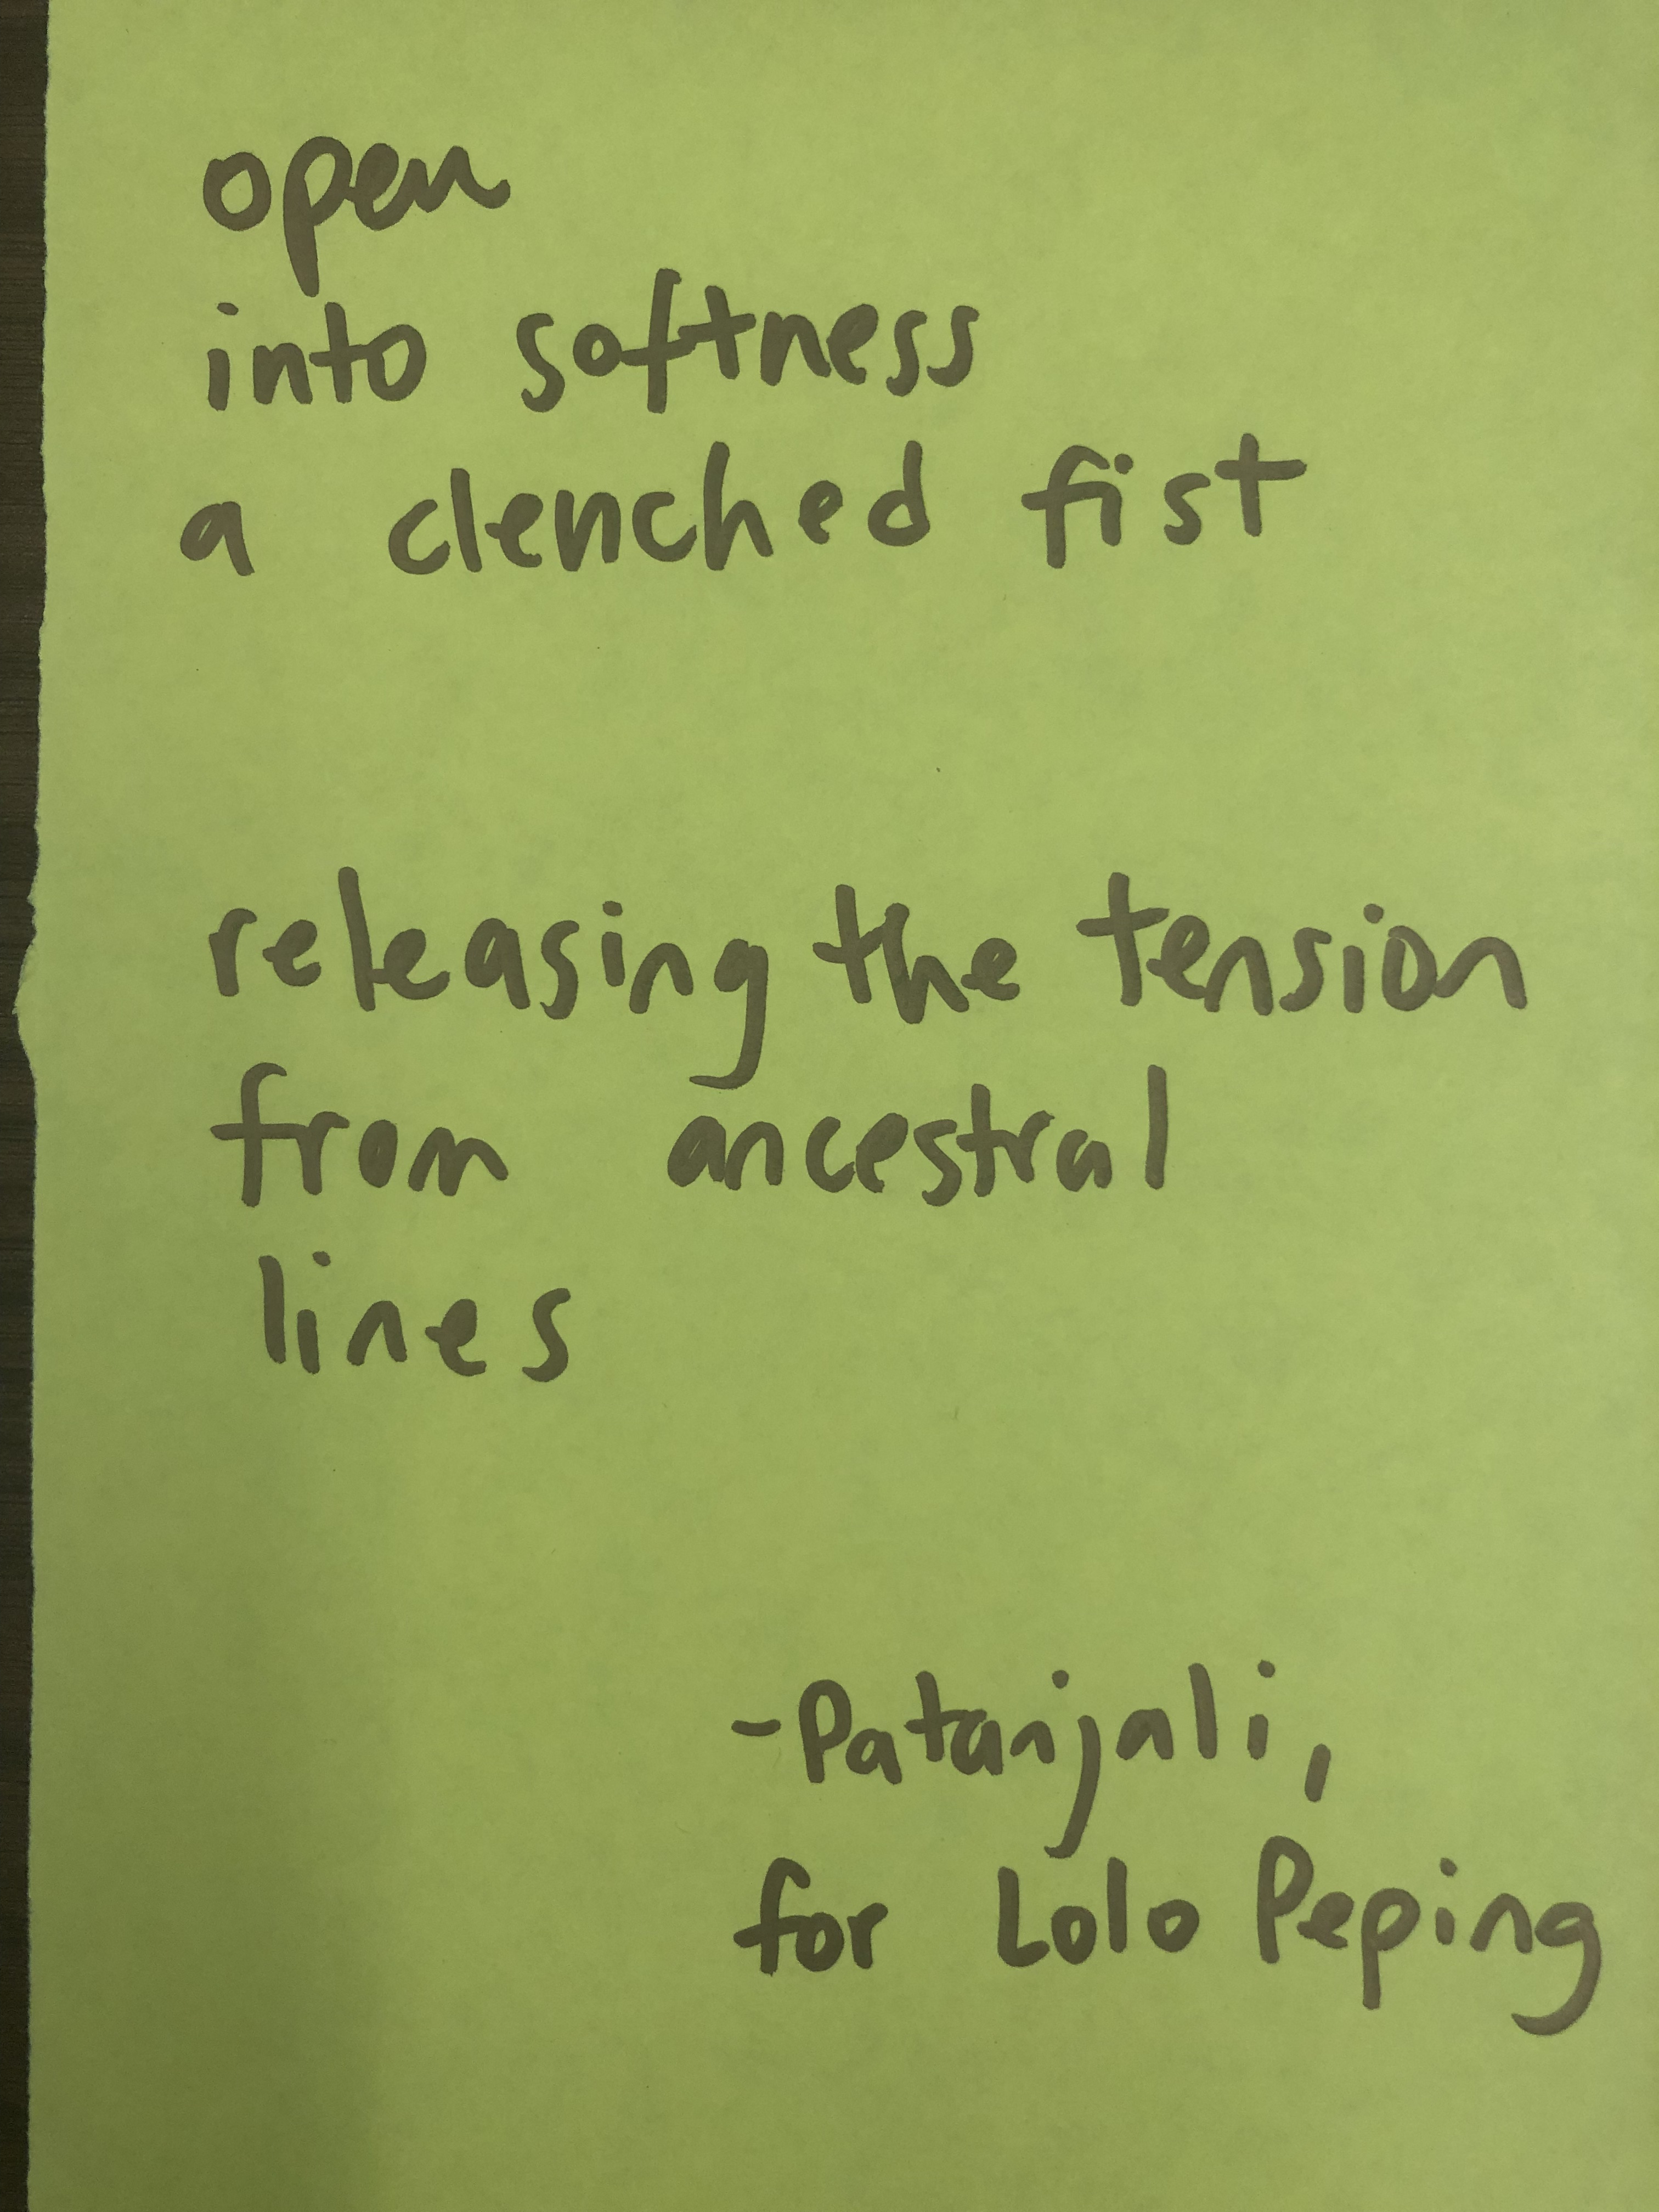 open
into softness
a clenched fist
releasing the tension
from ancestral
lines
-Patanjali,
for Lolo Peping